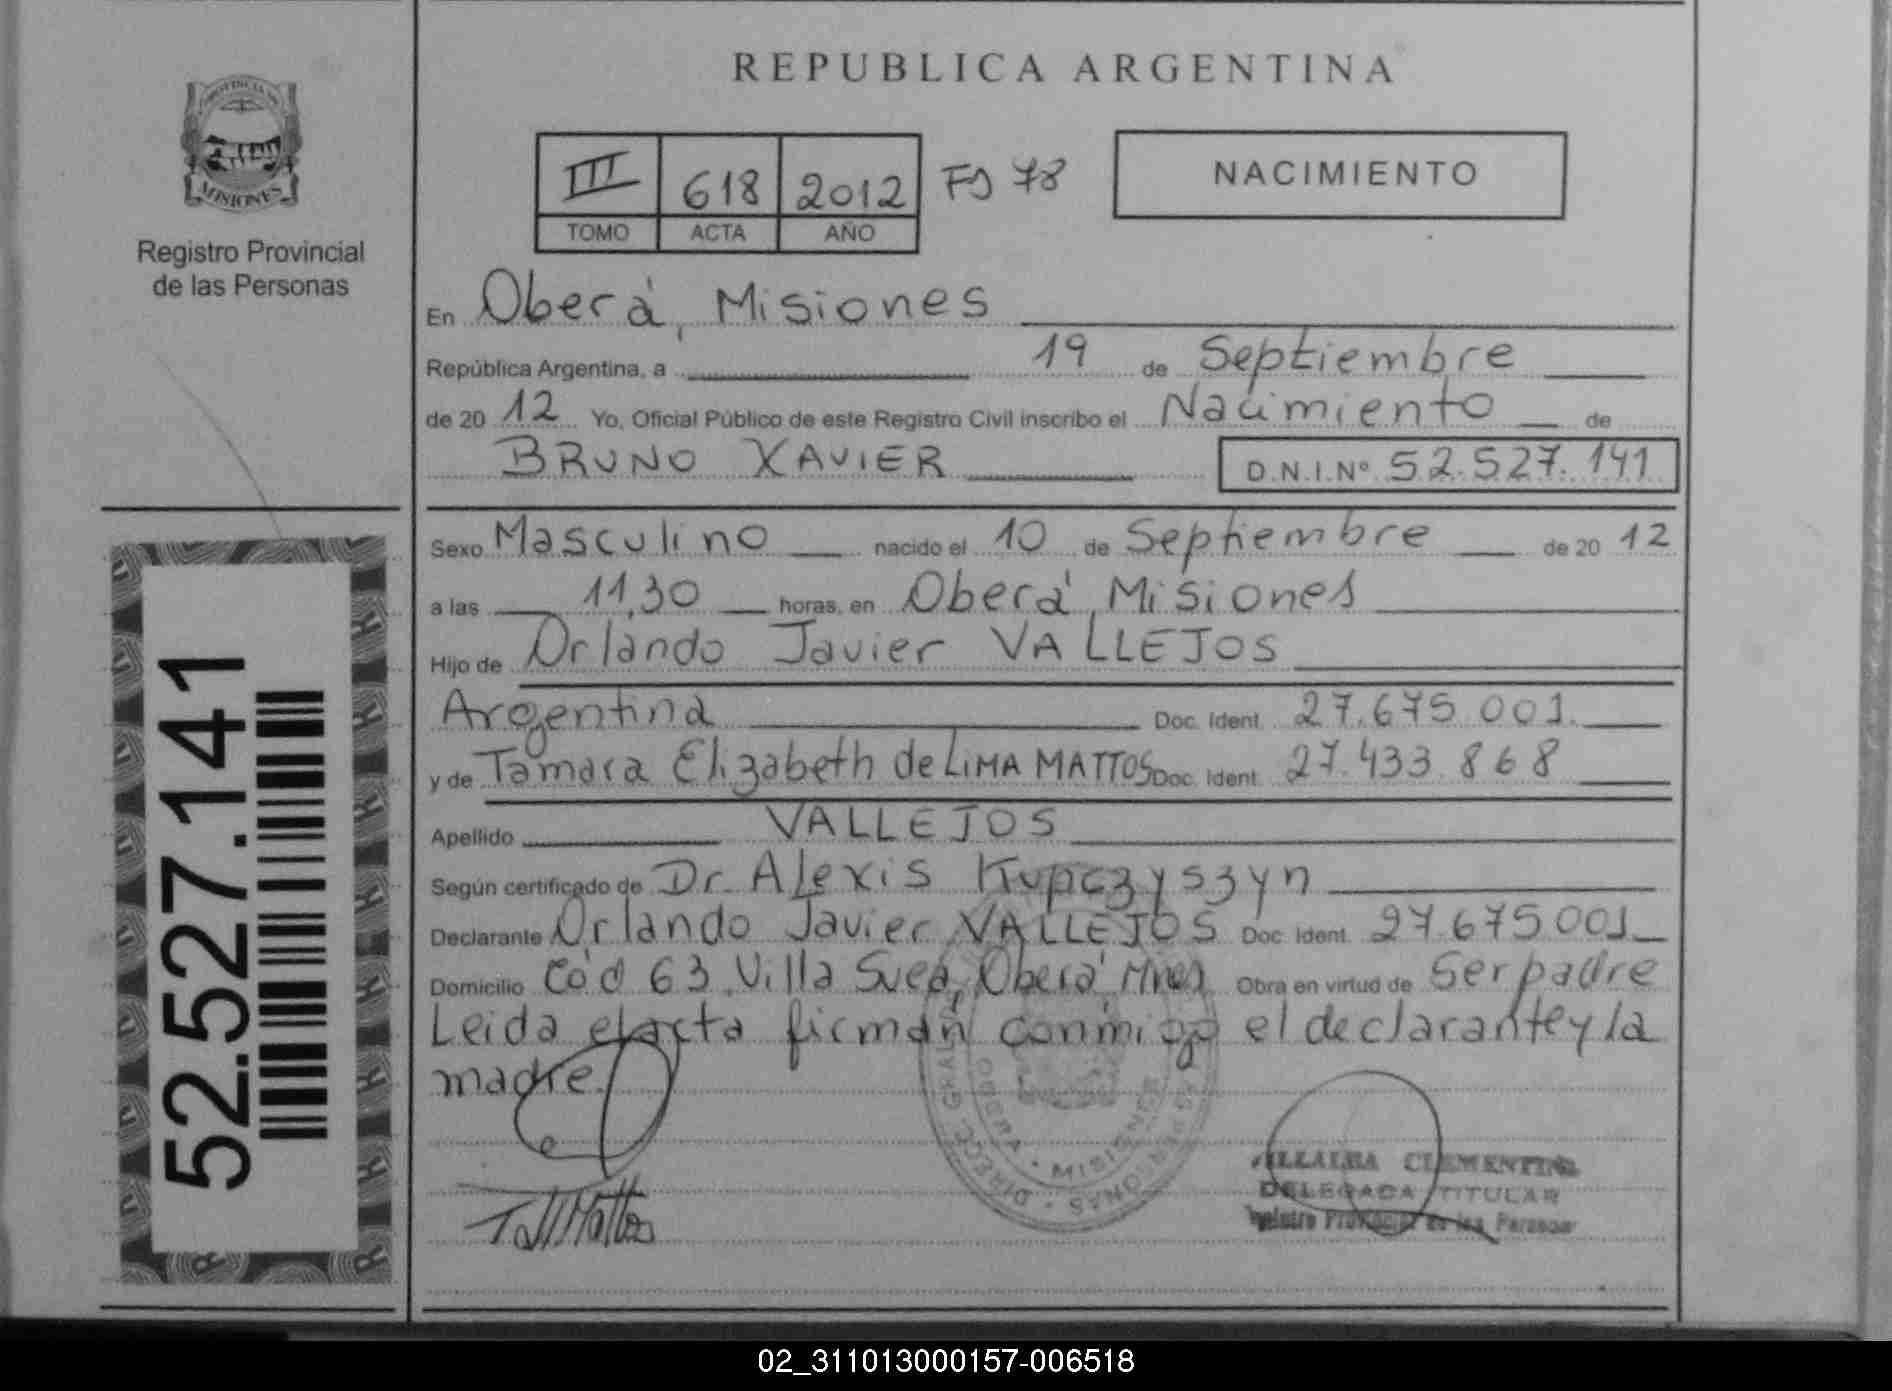 REPUBLICA ARGENTINA
PROVINCIA DE
MISIONES
Registro Provincial
de las Personas
III 618 2012 Fº 78
TOMO ACTA AÑO
NACIMIENTO
En Oberá, Misiones
República Argentina, a 19 de Septiembre
de 20 12 Yo, Oficial Público de este Registro Civil inscribo el Nacimiento de
BRUNO XAVIER D.N.I.Nº 52.527.141
Sexo Masculino nacido el 10 de Septiembre de 20 12
a las 11,30 horas, en Oberá, Misiones
Hijo de Orlando Javier VALLEJOS
Argentina Doc. Ident. 27.675.001.
y de Tamara Elizabeth de LiMA MATTOS Doc. Ident. 27.433.868
Apellido VALLEJOS
Según certificado de Dr. Alexis Kupczyszyn
Declarante Orlando Javier VALLEJOS Doc. Ident. 27.675.001
Domicilio 63 Villa Svea, Oberá Mnes Obra en virtud de Ser padre
Leida el acta firman conmigo el declarante y la
madre.
VILLALBA CLEMENTINA
DELEGADA TITULAR
Registro Provincial de las Personas
52.527.141
02_311013000157-006518